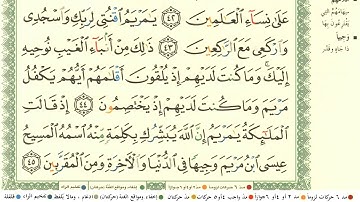 عَلَىٰ نِسَاءِ الْعَالَمِينَ ٤٢ يَا مَرْيَمُ اقْنُتِي لِرَبِّكِ وَاسْجُدِي
وَارْكَعِي مَعَ الرَّاكِعِينَ ٤٣ ذَٰلِكَ مِنْ أَنْبَاءِ الْغَيْبِ نُوحِيهِ
إِلَيْكَ وَمَا كُنْتَ لَدَيْهِمْ إِذْ يُلْقُونَ أَقْلَامَهُمْ أَيُّهُمْ يَكْفُلُ
مَرْيَمَ وَمَا كُنْتَ لَدَيْهِمْ إِذْ يَخْتَصِمُونَ ٤٤ إِذْ قَالَتِ
الْمَلَائِكَةُ يَا مَرْيَمُ إِنَّ اللَّهَ يُبَشِّرُكِ بِكَلِمَةٍ مِنْهُ اسْمُهُ الْمَسِيحُ
عِيسَى ابْنُ مَرْيَمَ وَجِيهًا فِي الدُّنْيَا وَالْآخِرَةِ وَمِنَ الْمُقَرَّبِينَ ٤٥